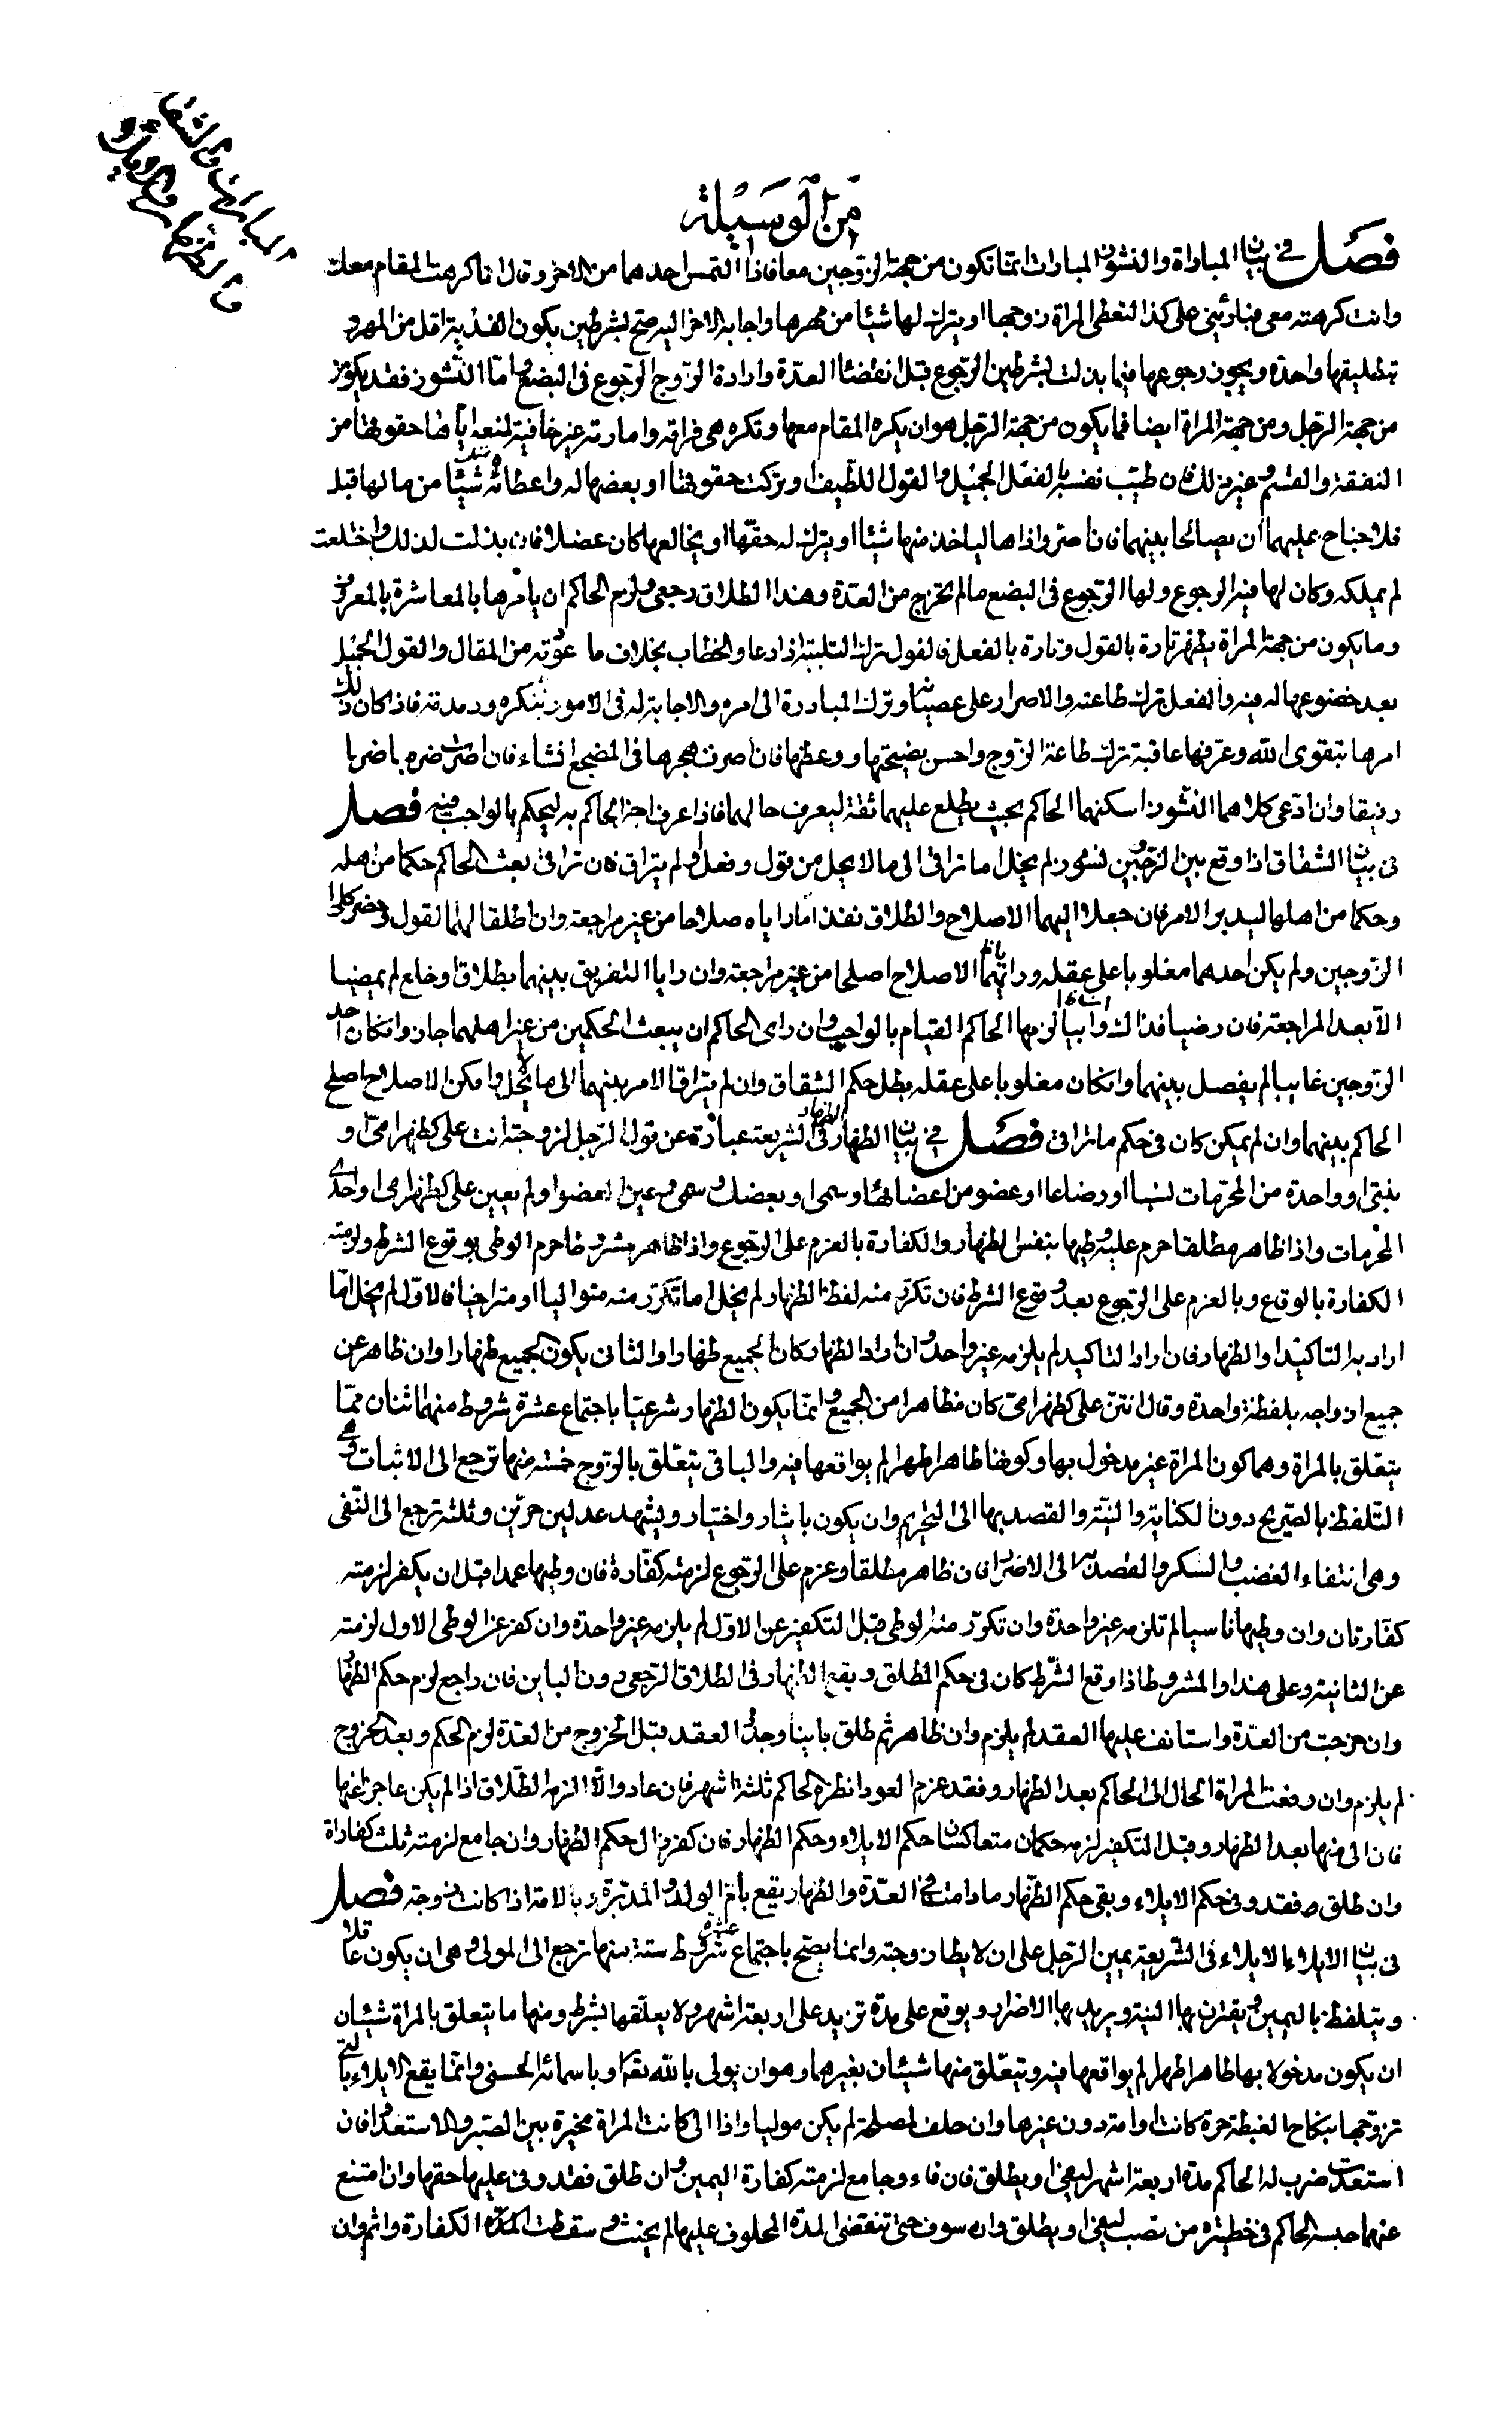 من الوسيلة
المبارات والشقاق والنشوز والظهار والايلاء
فصل في بيان المباراة والنشوز المبارات انما تكون من جهة الزوجين معا فاذا التمس احدهما من الاخر وقال انا كرهت المقام معك
وانت كرهته معي فبارئيني على كذا لتعطي المراة زوجها او يترك لها شيئا من مهرها واجابه الاخر اليه صح بشرطين يكون الفدية اقل من المهر و
تطليقها واحدة ويجوز رجوعها فيما بذلت بشرطين الرجوع قبل انقضاء العدة وارادة الزوج الرجوع في البضع واما النشوز فقد يكون من
من جهة الرجل ومن جهة المراة ايضا فما يكون من جهة الرجل هو ان يكره المقام معها وتكره هي فراقه وامارته غير خافية لمنعه اياها حقوقها من
النفقة والقسم وغير ذلك فان طيبت نفسه بالفعل الجميل والقول اللطيف او تركت حقوقها او بعضها له واعطائه شيئا من مالها قبله
فلا جناح عليهما ان يصالحا بينهما فان اضر واذاها لياخذ منها شيئا او يترك له حقها او يخالعها كان عضلا فان بذلت لذلك واختلعت
لم يملكه وكان لها فيه الرجوع ولها الرجوع في البضع ما لم يخرج من العدة وهذا الطلاق رجعي ولزم الحاكم ان يامرها بالمعاشرة بالمعروف
وما يكون من جهة المراة يظهر تارة بالقول وتارة بالفعل فالقول ترك التلبية اذا دعا والخطاب بخلاف ما عودته من المقال والقول الجميل
بعد خضوعها له فيه والفعل ترك طاعته والاصرار على عصيانه وترك المبادرة الى امره والاجابة له في الامور بتنكره ومدمدمة فاذا كان ذلك
امرها بتقوى الله وعرفها عاقبة ترك طاعة الزوج واحسن نصيحتها ووعظها فان اصرت هجرها في المضجع ان شاء فان اصرت ضربها ضربا
رفيقا وان ادعى كلاهما النشوز اسكنهما الحاكم بحيث يطلع عليهما ثقة ليعرف حالهما فاذا عرف اخبر الحاكم به ليحكم بالواجب فيه فصل
في بيان الشقاق اذا وقع بين الزوجين نشوز لم يخل اما تراقى الى ما لا يحل من قول وفعل او لم يتراق فان تراقى بعث الحاكم حكما من اهله
وحكما من اهلها ليدبر الامر فان جعلا اليهما الاصلاح والطلاق نفذا ما راياه صلاحا من غير مراجعة وان اطلقا لهما القول وحضر كلا
الزوجين ولم يكن احدهما مغلوبا على عقله ورايا الاصلاح اصلحا من غير مراجعة وان رايا التفريق بينهما بطلاق او خلع لم يمضيا
الا بعد المراجعة فان رضيا فذاك وان ابيا الزمهما الحاكم القيام بالواجب وان راى الحاكم ان يبعث الحكمين من غير اهلهما جاز وان كان احد
الزوجين غايبا لم يفصل بينهما وان كان مغلوبا على عقله بطل حكم الشقاق وان لم يتراق الامر بينهما الى ما لا يحل وامكن الاصلاح اصلح
الحاكم بينهما وان لم يمكن كان في حكم ما تراقى فصل في بيان الظهار الظهار في الشريعة عبارة عن قول الرجل لزوجته انت علي كظهر امي او
بنتي او واحدة من المحرمات نسبا او رضاعا او عضو من اعضائها وسمى او بعضك وسمى وعين العضو او لم يعين علي كظهر امي او احدى
المحرمات واذا ظاهر مطلقا حرم عليه وطيها بنفس الظهار والكفارة بالعزم على الرجوع واذا ظاهر مشروطا حرم الوطي بوقوع الشرط ولزمته
الكفارة بالوقاع وبالعزم على الرجوع بعد وقوع الشرط فان تكرر منه لفظ الظهار لم يخل اما تكرر منه متواليا او متراخيا فالاول لم يخل اما
اراد به التاكيد او الظهار فان اراد التاكيد لم يلزمه غير واحد وان اراد الظهار كان الجميع ظهارا والثاني يكون الجميع ظهارا وان ظاهر عن
جميع ازواجه بلفظة واحدة وقال انتن علي كظهر امي كان مظاهرا من الجميع وانما يكون الظهار شرعيا باجتماع عشرة شروط منهما اثنان مما
يتعلق بالمراة وهما كون المراة غير مدخول بها وكونها طاهرا طهرا لم يواقعها فيه والباقي يتعلق بالزوج خمسة منها ترجع الى الاثبات وهي
التلفظ بالصريح دون الكناية والنية والقصد بها الى التحريم وان يكون بايثار واختيار ويشهد عدلين حرين وثلثة ترجع الى النفى
وهي انتفاء الغضب والسكر والقصد به الى الاضرار فان ظاهر مطلقا وعزم على الرجوع لزمته كفارة فان وطيها عمدا قبل ان يكفر لزمته
كفارتان وان وطيها ناسيا لم تلزمه غير واحدة وان تكرر منه الوطي قبل التكفير عن الاول لم يلزمه غير واحدة وان كفر عن الوطي الاول لزمته
عن الثانية وعلى هذا والمشروط اذا وقع الشرط كان في حكم المطلق ويقع الظهار في الطلاق الرجعي دون الباين فان راجع لزم حكم الظهار
وان خرجت من العدة واستانف عليها العقد لم يلزم وان ظاهر ثم طلق باينا وجدد العقد قبل الخروج من العدة لزم الحكم وبعد الخروج
لم يلزم وان رفعت المراة الحال الى الحاكم بعد الظهار وفقد عزم العود انظره الحاكم ثلثة اشهر فان عاد والا الزمه الطلاق اذا لم يكن عاجزا عنها
فان الى منها بعد الظهار وقبل التكفير لزمه حكمان متعاكسان حكم الايلاء وحكم الظهار فان كفر زال حكم الظهار وان جامع لزمته ثلث كفاراة
وان طلق فقد وفي حكم الايلاء وبقى حكم الظهار ما دامت في العدة والظهار يقع بام الولد والمدبرة وبالامة اذا كانت زوجة فصل
في بيان الايلاء الايلاء في الشريعة يمين الرجل على ان لا يطا زوجته وانما يصح باجتماع عشرة شروط ستة منها ترجع الى المولى وهي ان يكون عاقلا
ويتلفظ باليمين ويقترن بها النية ويريد بها الاضرار ويوقع على مدة تزيد على اربعة اشهر ولا يعلقها بشرط ومنها ما يتعلق بالمراة شيئان
ان يكون مدخولا بها طاهرا طهرا لم يواقعها فيه ويتعلق منها شيئان بغيرهما وهو ان يولى بالله تعالى او باسمائه الحسنى وانما يقع الايلاء بالتي
تزوجها بنكاح الغبطة حرة كانت او امة دون غيرها وان حلف لمصلحة لم يكن موليا واذا الى كانت المراة مخيرة بين الصبر والاستعداء فان
استعدت ضرب له الحاكم مدة اربعة اشهر ليفئ او يطلق فان فاء وجامع لزمته كفارة اليمين وان طلق فقد وفي عليها حقها وان امتنع
عنهما حبسه الحاكم في خطيرة من قصب ليفئ او يطلق وان سوف حتى تنقضى المدة المحلوف عليها لم يحنث وسقطت الكفارة واثم وان